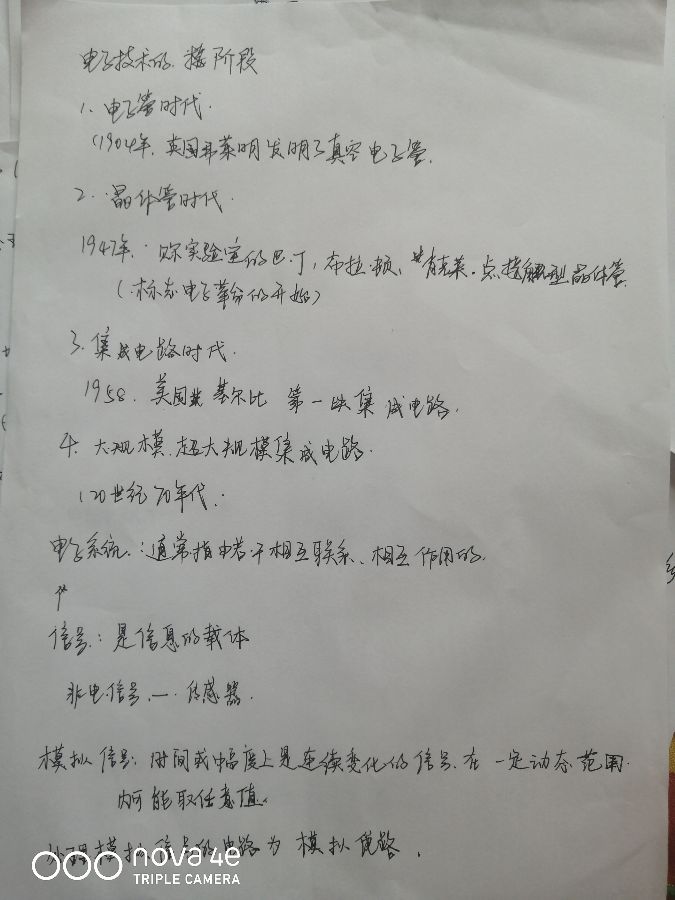 电子技术的 接 阶段
1. 电子管时代.
(1904年. 英国弗莱明发明了真空电子管.
2. 晶体管时代.
1947年. 贝尔实验室的巴丁, 布拉顿, 肖克莱. 点接触型晶体管.
(标志电子革命的开始)
3. 集成电路时代.
1958. 美国 基尔比 第一块集成电路.
4. 大规模.超大规模集成电路.
(20世纪70年代.
电子系统: 通常指由若干相互联系、相互作用的.
信号: 是信息的载体
非电信号 — 传感器.
模拟信号: 时间或幅度上是连续变化的信号.在一定动态范围.
内可能取任意值.
处理模拟信号的电路为 模拟电路.
nova 4e
TRIPLE CAMERA